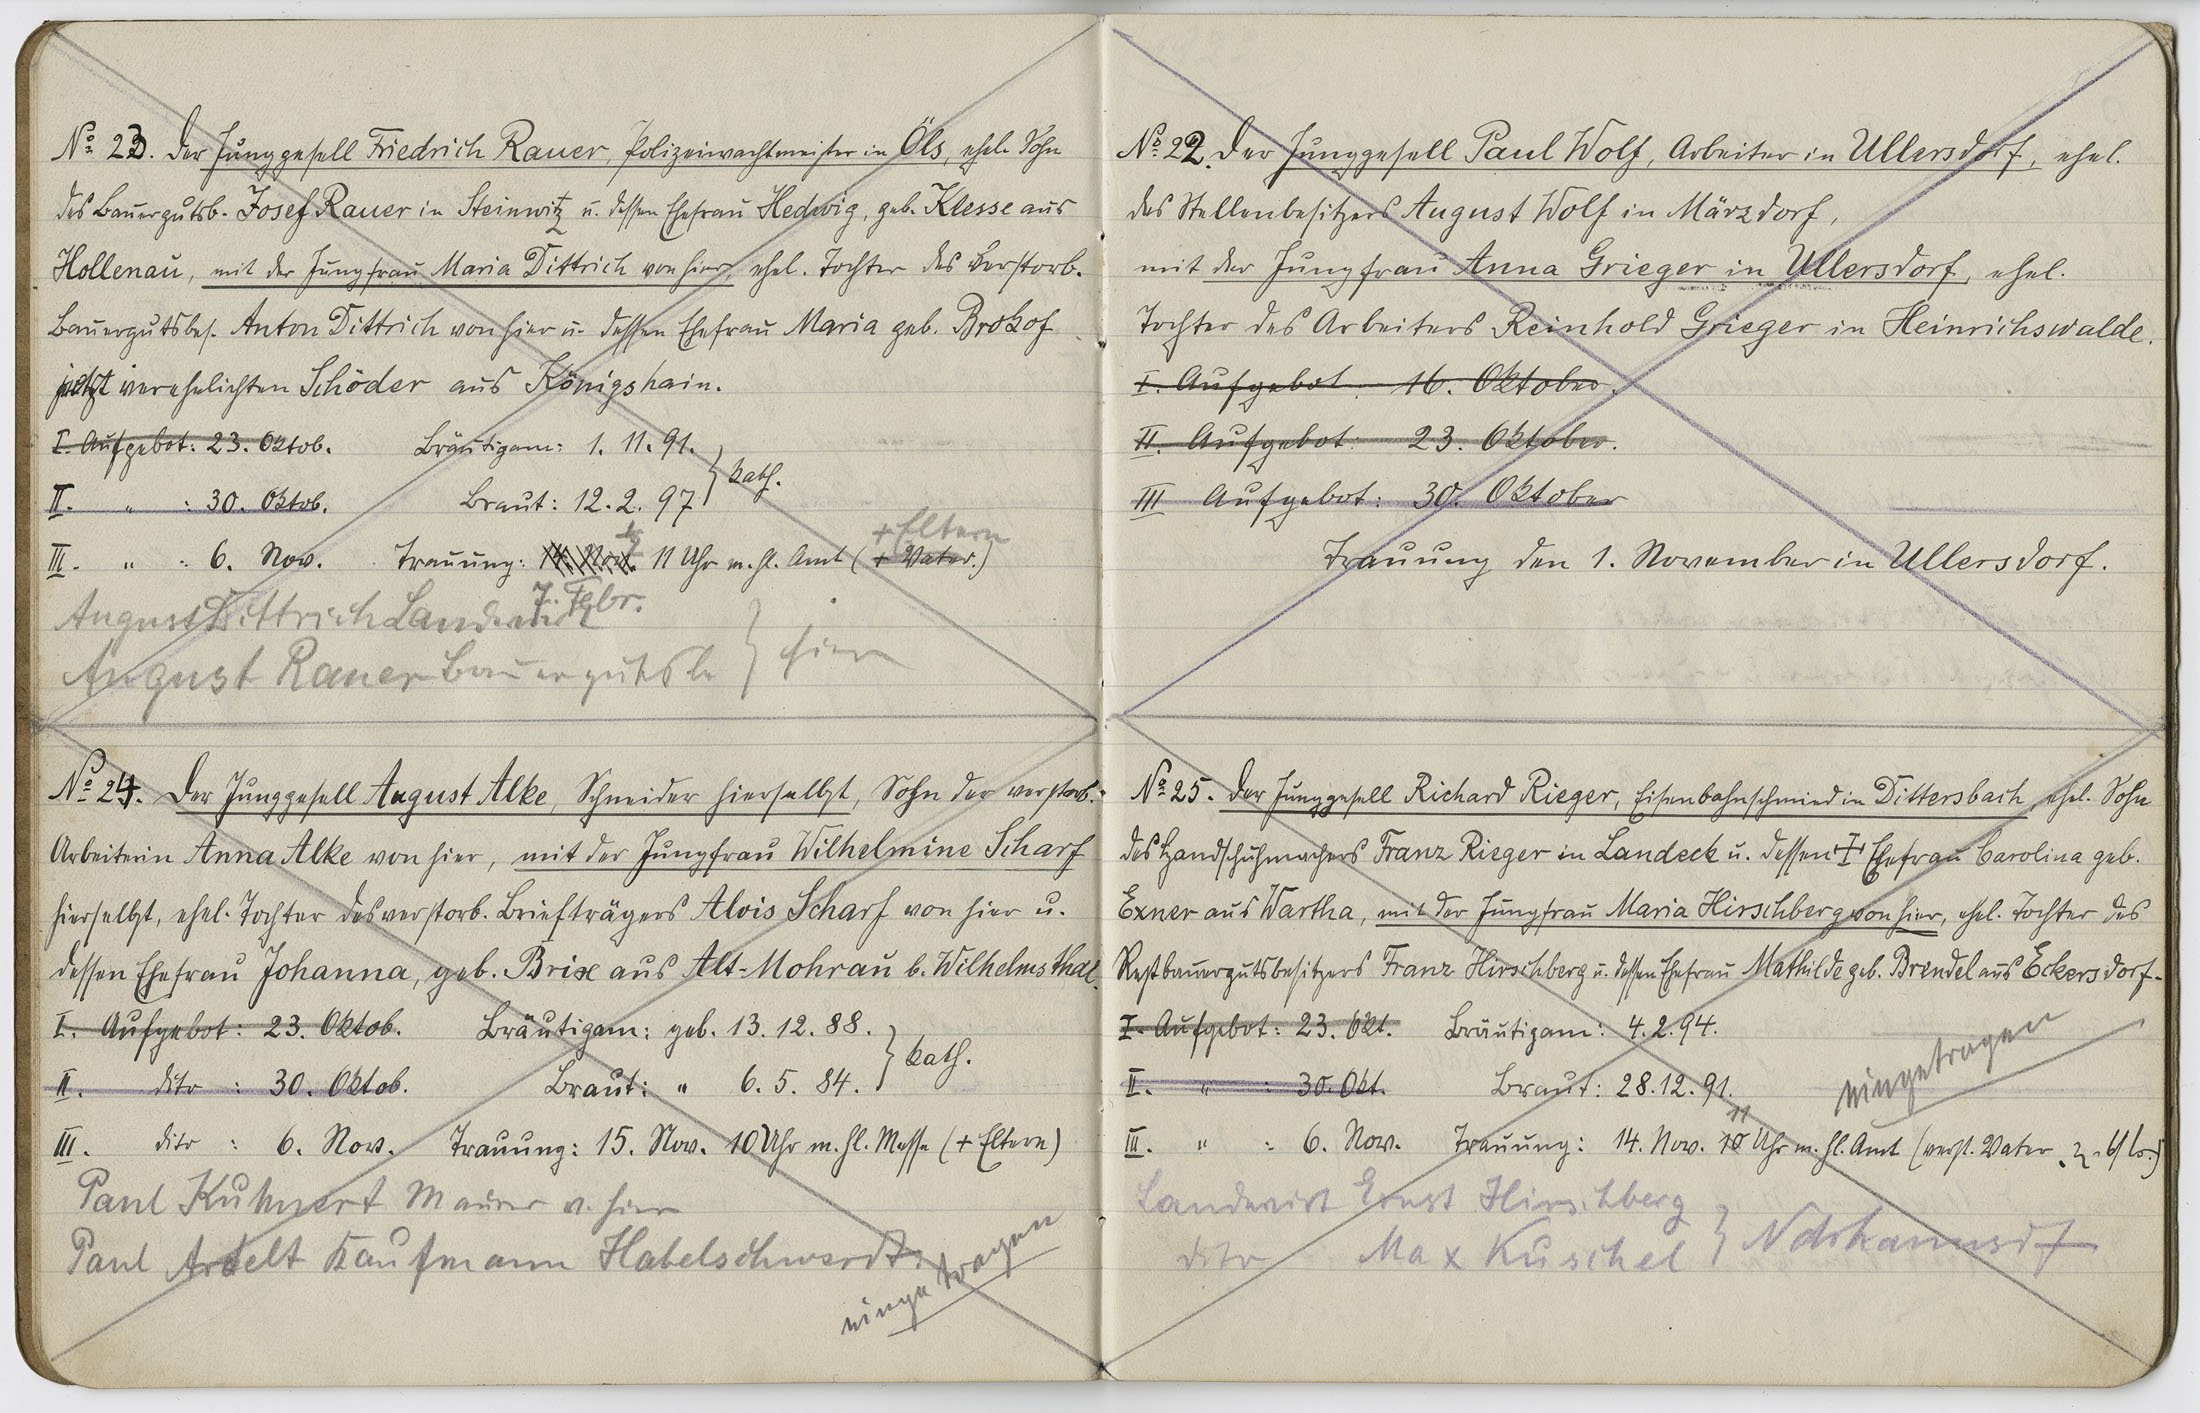 No 23. Der Junggesell Friedrich Rauer, Polizeiwachtmeister in Öls, ehel. Sohn
des Bauergutsb. Josef Rauer in Steinwitz u. dessen Ehefrau Hedwig, geb. Klesse aus
Hollenau, mit der Jungfrau Maria Dittrich von hier, ehel. Tochter des verstorb.
Bauergutsbes. Anton Dittrich von hier u. dessen Ehefrau Maria geb. Brokof
jetzt verehelichten Schöder aus Königshain.
I. Aufgebot: 23. Oktob. Bräutigam: 1. 11. 91. } kath.
II. " : 30. Oktob. Braut: 12. 2. 97
III. " : 6. Nov. Trauung: 14. Nov. 11 Uhr m. hl. Amt († Vater.)
† Eltern
7. Febr.
August Dittrich Landwirt } hier
August Rauer Bauergutsb
No 24. Der Junggesell August Alke, Schneider hierselbst, Sohn der verstorb.
Arbeiterin Anna Alke von hier, mit der Jungfrau Wilhelmine Scharf
hierselbst, ehel. Tochter des verstorb. Briefträgers Alois Scharf von hier u.
dessen Ehefrau Johanna, geb. Brix aus Alt-Mohrau b. Wilhelmsthal.
I. Aufgebot: 23. Oktob. Bräutigam: geb. 13. 12. 88. } kath.
II. dito : 30. Oktob. Braut: " 6. 5. 84.
III. dito : 6. Nov. Trauung: 15. Nov. 10 Uhr m. hl. Messe († Eltern)
Paul Kuhnert Maurer v. hier
Paul Ardelt Kaufmann Habelschwerdt.
eingetragen
No 22. Der Junggesell Paul Wolf, Arbeiter in Ullersdorf, ehel.
des Stellenbesitzers August Wolf in Märzdorf,
mit der Jungfrau Anna Grieger in Ullersdorf, ehel.
Tochter des Arbeiters Reinhold Grieger in Heinrichswalde.
I. Aufgebot 16. Oktober.
II. Aufgebot: 23. Oktober.
III Aufgebot: 30. Oktober
Trauung den 1. November in Ullersdorf.
No 25. Der Junggesell Richard Rieger, Eisenbahnschmied in Dittersbach, ehel. Sohn
des Handschuhmachers Franz Rieger in Landeck u. dessen † Ehefrau Carolina geb.
Exner aus Wartha, mit der Jungfrau Maria Hirschberg von hier, ehel. Tochter des
Restbauergutsbesitzers Franz Hirschberg u. dessen Ehefrau Mathilde geb. Brendel aus Eckersdorf.
I. Aufgebot: 23. Okt. Bräutigam: 4. 2. 94.
II. " : 30. Okt. Braut: 28. 12. 91.
eingetragen
III. " : 6. Nov. Trauung: 14. Nov. 11 Uhr m. hl. Amt (verst. Vater
Landwirt Ernst Hirschberg
dito Max Kuschel